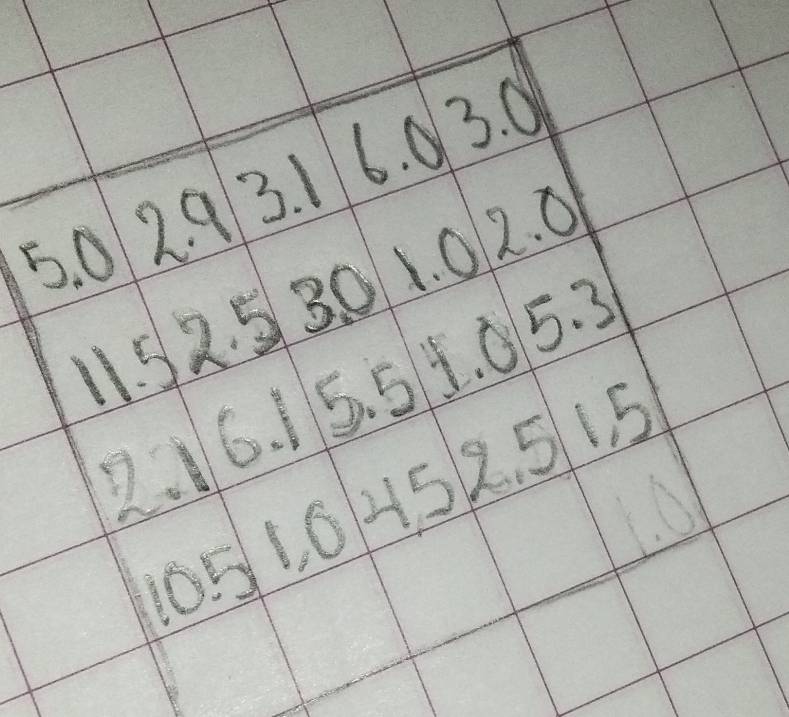 5.0 2.9 3.1 6.0 3.0
11.5 2.5 3.0 1.0 2.0
2.1 6.1 5.5 1.0 5.3
10.5 1,0 4,5 2.5 1,5
1.0